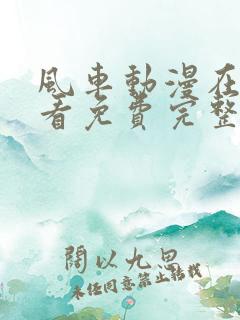 風車動漫在
看免費完整
閱以九思
未經同意禁止轉載